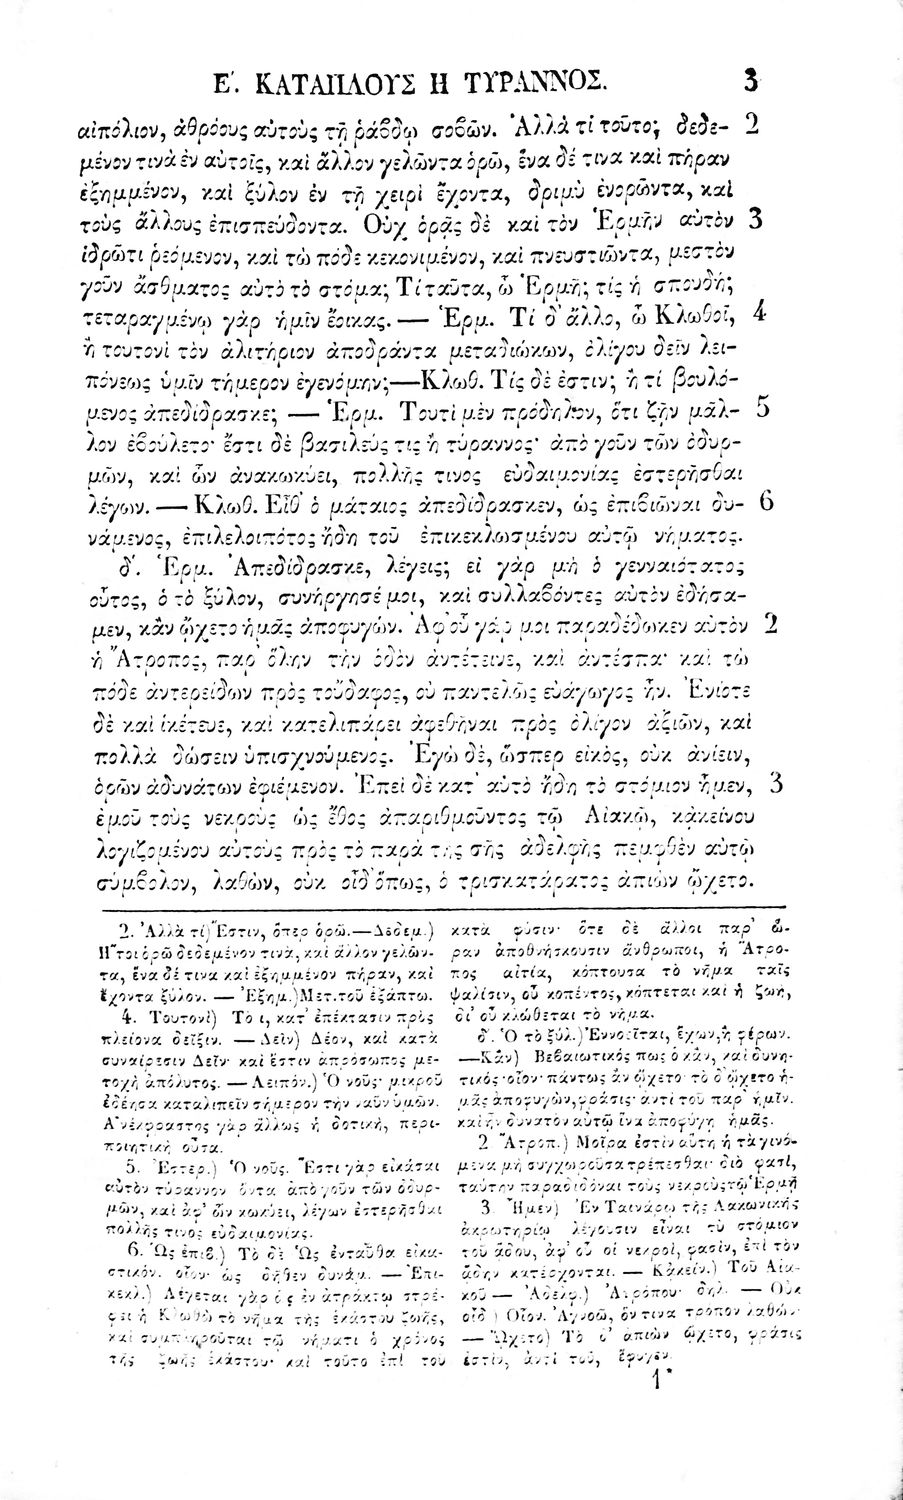 Ε΄. ΚΑΤΑΠΛΟΥΣ Η ΤΥΡΑΝΝΟΣ. 3
αἰπόλιον, ἀθρόους αὐτοὺς τῇ ῥάβδῳ σοβῶν. Ἀλλὰ τί τοῦτο; δεδε- 2
μένον τινὰ ἐν αὐτοῖς, καὶ ἄλλον γελῶντα ὁρῶ, ἕνα δέ τινα καὶ πήραν
ἐξημμένον, καὶ ξύλον ἐν τῇ χειρὶ ἔχοντα, δριμὺ ἐνορῶντα, καὶ
τοὺς ἄλλους ἐπισπεύδοντα. Οὐχ ὁρᾷς δὲ καὶ τὸν Ἑρμῆν αὐτὸν 3
ἱδρῶτι ῥεόμενον, καὶ τὼ πόδε κεκονιμένον, καὶ πνευστιῶντα, μεστὸν
γοῦν ἄσθματος αὐτὸ τὸ στόμα; Τί ταῦτα, ὦ Ἑρμῆ; τίς ἡ σπουδή;
τεταραγμένῳ γὰρ ἡμῖν ἔοικας. — Ἑρμ. Τί δ' ἄλλο, ὦ Κλωθοῖ, 4
ἢ τουτονὶ τὸν ἀλιτήριον ἀποδράντα μεταδιώκων, ὀλίγου δεῖν λει-
πόνεως ὑμῖν τήμερον ἐγενόμην;—Κλωθ. Τίς δὲ ἐστιν; ἢ τί βουλό-
μενος ἀπεδίδρασκε; — Ἑρμ. Τουτὶ μὲν πρόδηλον, ὅτι ζῆν μᾶλ- 5
λον ἐβούλετο· ἔστι δὲ βασιλεύς τις ἢ τύραννος· ἀπὸ γοῦν τῶν ὀδυρ-
μῶν, καὶ ὧν ἀνακωκύει, πολλῆς τινος εὐδαιμονίας ἐστερῆσθαι
λέγων. — Κλωθ. Εἶθ' ὁ μάταιος ἀπεδίδρασκεν, ὡς ἐπιβιῶναι δυ- 6
νάμενος, ἐπιλελοιπότος ἤδη τοῦ ἐπικεκλωσμένου αὐτῷ νήματος.
δ΄. Ἑρμ. Ἀπεδίδρασκε, λέγεις; εἰ γὰρ μὴ ὁ γενναιότατος
οὗτος, ὁ τὸ ξύλον, συνήργησέ μοι, καὶ συλλαβόντες αὐτὸν ἐδήσα-
μεν, κἂν ᾤχετο ἡμᾶς ἀποφυγών. Ἀφ' οὗ γάρ μοι παραδέδωκεν αὐτὸν 2
ἡ Ἄτροπος, παρ' ὅλην τὴν ὁδὸν ἀντέτεινε, καὶ ἀντέσπα· καὶ τὼ
πόδε ἀντερείδων πρὸς τοὔδαφος, οὐ παντελῶς εὐάγωγος ἦν. Ἐνίοτε
δὲ καὶ ἱκέτευε, καὶ κατελιπάρει ἀφεθῆναι πρὸς ὀλίγον ἀξιῶν, καὶ
πολλὰ δώσειν ὑπισχνούμενος. Ἐγὼ δὲ, ὥσπερ εἰκὸς, οὐκ ἀνίειν,
ὁρῶν ἀδυνάτων ἐφιέμενον. Ἐπεὶ δὲ κατ' αὐτὸ ἤδη τὸ στόμιον ἦμεν, 3
ἐμοῦ τοὺς νεκροὺς ὡς ἔθος ἀπαριθμοῦντος τῷ Αἰακῷ, κἀκείνου
λογιζομένου αὐτοὺς πρὸς τὸ παρὰ τῆς σῆς ἀδελφῆς πεμφθὲν αὐτῷ
σύμβολον, λαθὼν, οὐκ οἶδ' ὅπως, ὁ τρισκατάρατος ἀπιὼν ᾤχετο.
2. Ἀλλὰ τί) Ἔστιν, ὅπερ ὁρῶ.—Δεδεμ.)
Ἤτοι ὁρῶ δεδεμένον τινὰ, καὶ ἄλλον γελῶν-
τα, ἕνα δέ τινα καὶ ἐξημμένον πήραν, καὶ
ἔχοντα ξύλον. — Ἐξημ.) Μετ. τοῦ ἐξάπτω.
4. Τουτονὶ) Τὸ ι, κατ' ἐπέκτασιν πρὸς
πλείονα δεῖξιν. — Δεῖν) Δέον, καὶ κατὰ
συναίρεσιν Δεῖν· καὶ ἔστιν ἀπρόσωπος με-
τοχὴ ἀπόλυτος. — Λειπόν.) Ὁ νοῦς· μικροῦ
ἐδέησα καταλιπεῖν σήμερον τὴν ναῦν ὑμῶν.
Ἀνέκφραστος γὰρ ἄλλως ἡ δοτικὴ, περι-
ποιητικὴ οὖσα.
5. Ἐστερ.) Ὁ νοῦς. Ἔστι γὰρ εἰκάσαι
αὐτὸν τύραννον ὄντα ἀπὸ γοῦν τῶν ὀδυρ-
μῶν, καὶ ἀφ' ὧν κωκύει, λέγων ἐστερῆσθαι
πολλῆς τινος εὐδαιμονίας.
6. Ὡς ἐπιβ.) Τὸ δὲ Ὡς ἐνταῦθα εἰκα-
στικόν. οἷον· ὡς δῆθεν δυνάμ. — Ἐπι-
κεκλ.) Λέγεται γὰρ ὡς ἐν ἀτράκτῳ στρέ-
φει ἡ Κλωθὼ τὸ νῆμα τῆς ἑκάστου ζωῆς,
καὶ συμπληροῦται τῷ νήματι ὁ χρόνος
τῆς ζωῆς ἑκάστου· καὶ τοῦτο ἐπὶ τοῦ
κατὰ φύσιν· ὅτε δὲ ἄλλοι παρ' ὥ-
ραν ἀποθνήσκουσιν ἄνθρωποι, ἡ Ἄτρο-
πος αἰτία, κόπτουσα τὸ νῆμα ταῖς
ψαλίσιν, οὗ κοπέντος, κόπτεται καὶ ἡ ζωὴ,
δι' οὗ κλώθεται τὸ νῆμα.
δ΄. Ὁ τὸ ξύλ.) Ἐννοεῖται, ἔχων, ἢ φέρων.
—Κἂν) Βεβαιωτικός πως ὁ κἂν, καὶ δυνη-
τικός· οἷον· πάντως ἂν ᾤχετο· τὸ δ' ᾤχετο ἡ-
μᾶς ἀποφυγὼν, φράσις· ἀντὶ τοῦ παρ' ἡμῖν.
καὶ ἦν δυνατὸν αὐτῷ ἵνα ἀποφύγῃ ἡμᾶς.
2 Ἄτροπ.) Μοῖρα ἐστὶν αὕτη ἡ τὰ γινό-
μενα μὴ συγχωροῦσα τρέπεσθαι· διὸ φασὶ,
ταύτην παραδιδόναι τοὺς νεκροὺς τῷ Ἑρμῇ
3. Ἦμεν) Ἐν Ταινάρῳ τῆς Λακωνικῆς
ἀκρωτηρίῳ λέγουσιν εἶναι τὸ στόμιον
τοῦ ᾅδου, ἀφ' οὗ οἱ νεκροὶ, φασὶν, ἐπὶ τὸν
ᾅδην κατέρχονται. — Κἀκείν.) Τοῦ Αἰα-
κοῦ — Ἀδελφ.) Ἀτρόπου δηλ. — Οὐκ
οἶδ') Οἷον. Ἀγνοῶ, ὅντινα τρόπον λαθών.
— Ὤχετο) Τὸ δ' ἀπιὼν ᾤχετο, φράσις
ἐστὶν, ἀντὶ τοῦ, ἔφυγεν.
1*